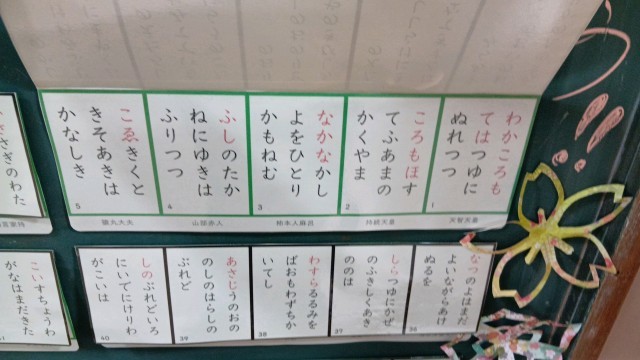 わかころも
てはつゆに
ぬれつつ
1
天智天皇
ころもほす
てふあまの
かくやま
2
持統天皇
なかなかし
よをひとり
かもねむ
3
柿本人麻呂
ふしのたか
ねにゆきは
ふりつつ
4
山部赤人
こゑきくと
きそあきは
かなしき
5
猿丸大夫
さぎのわた
家持
なつのよはまだ
よいながらあけ
ぬるを
36
しらつゆにかぜ
のふきしくあき
ののは
37
わすらるるみを
ばおもわずちか
いてし
38
あさじうのおの
のしのはらしの
ぶれど
39
しのぶれどいろ
にいでにけりわ
がこいは
40
こいすちょうわ
がなはまだきた